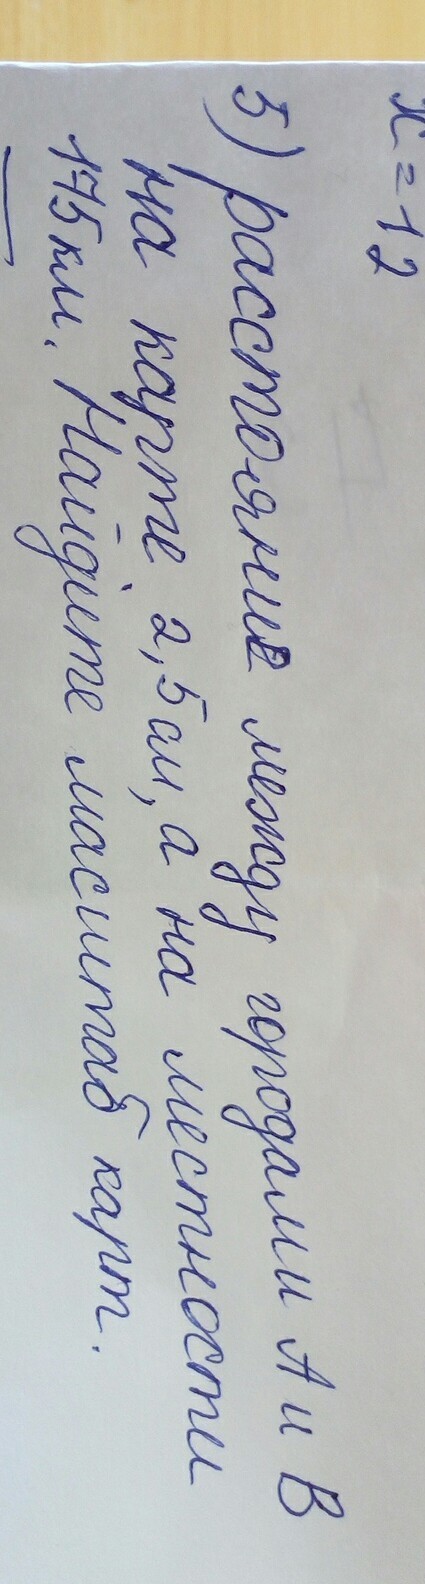 х = 12
5) расстояние между городами А и В
на карте 2,5 см, а на местности
175 км. Найдите масштаб карт.